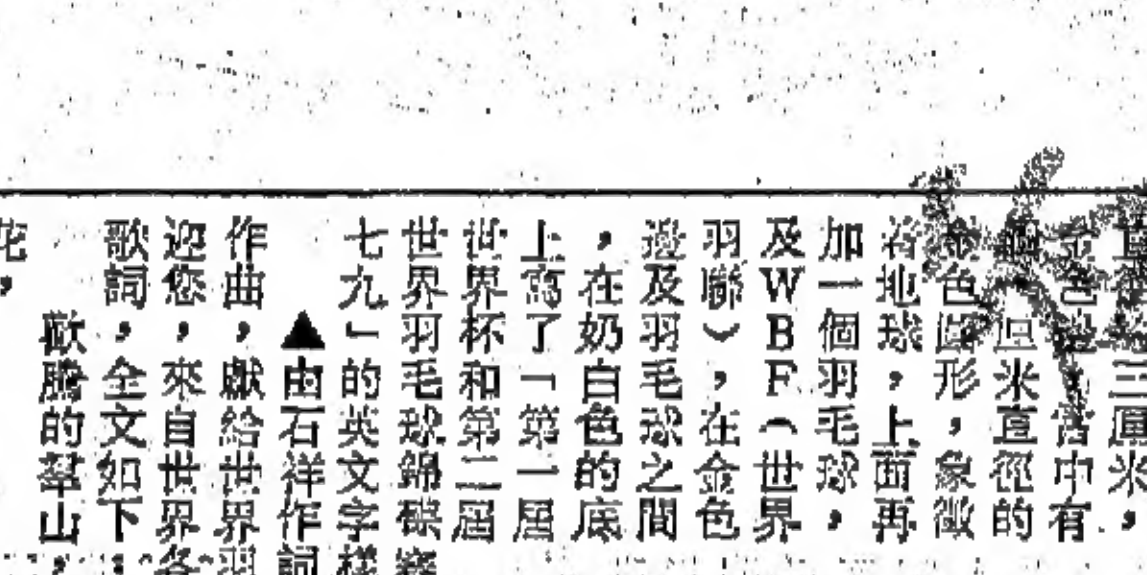 直徑三厘米，
金色邊，當中有
個一厘米直徑的
金色圓形，象徵
着地球，上面再
加一個羽毛球，
及WBF（世界
羽聯），在金色
邊及羽毛球之間
，在奶白色的底
上寫了「第一屆
世界杯和第二屆
世界羽毛球錦標賽
七九」的英文字樣
▲由石祥作詞
作曲，獻給世界羽
迎您，來自世界各
歌詞，全文如下
歡騰的羣山，
花，